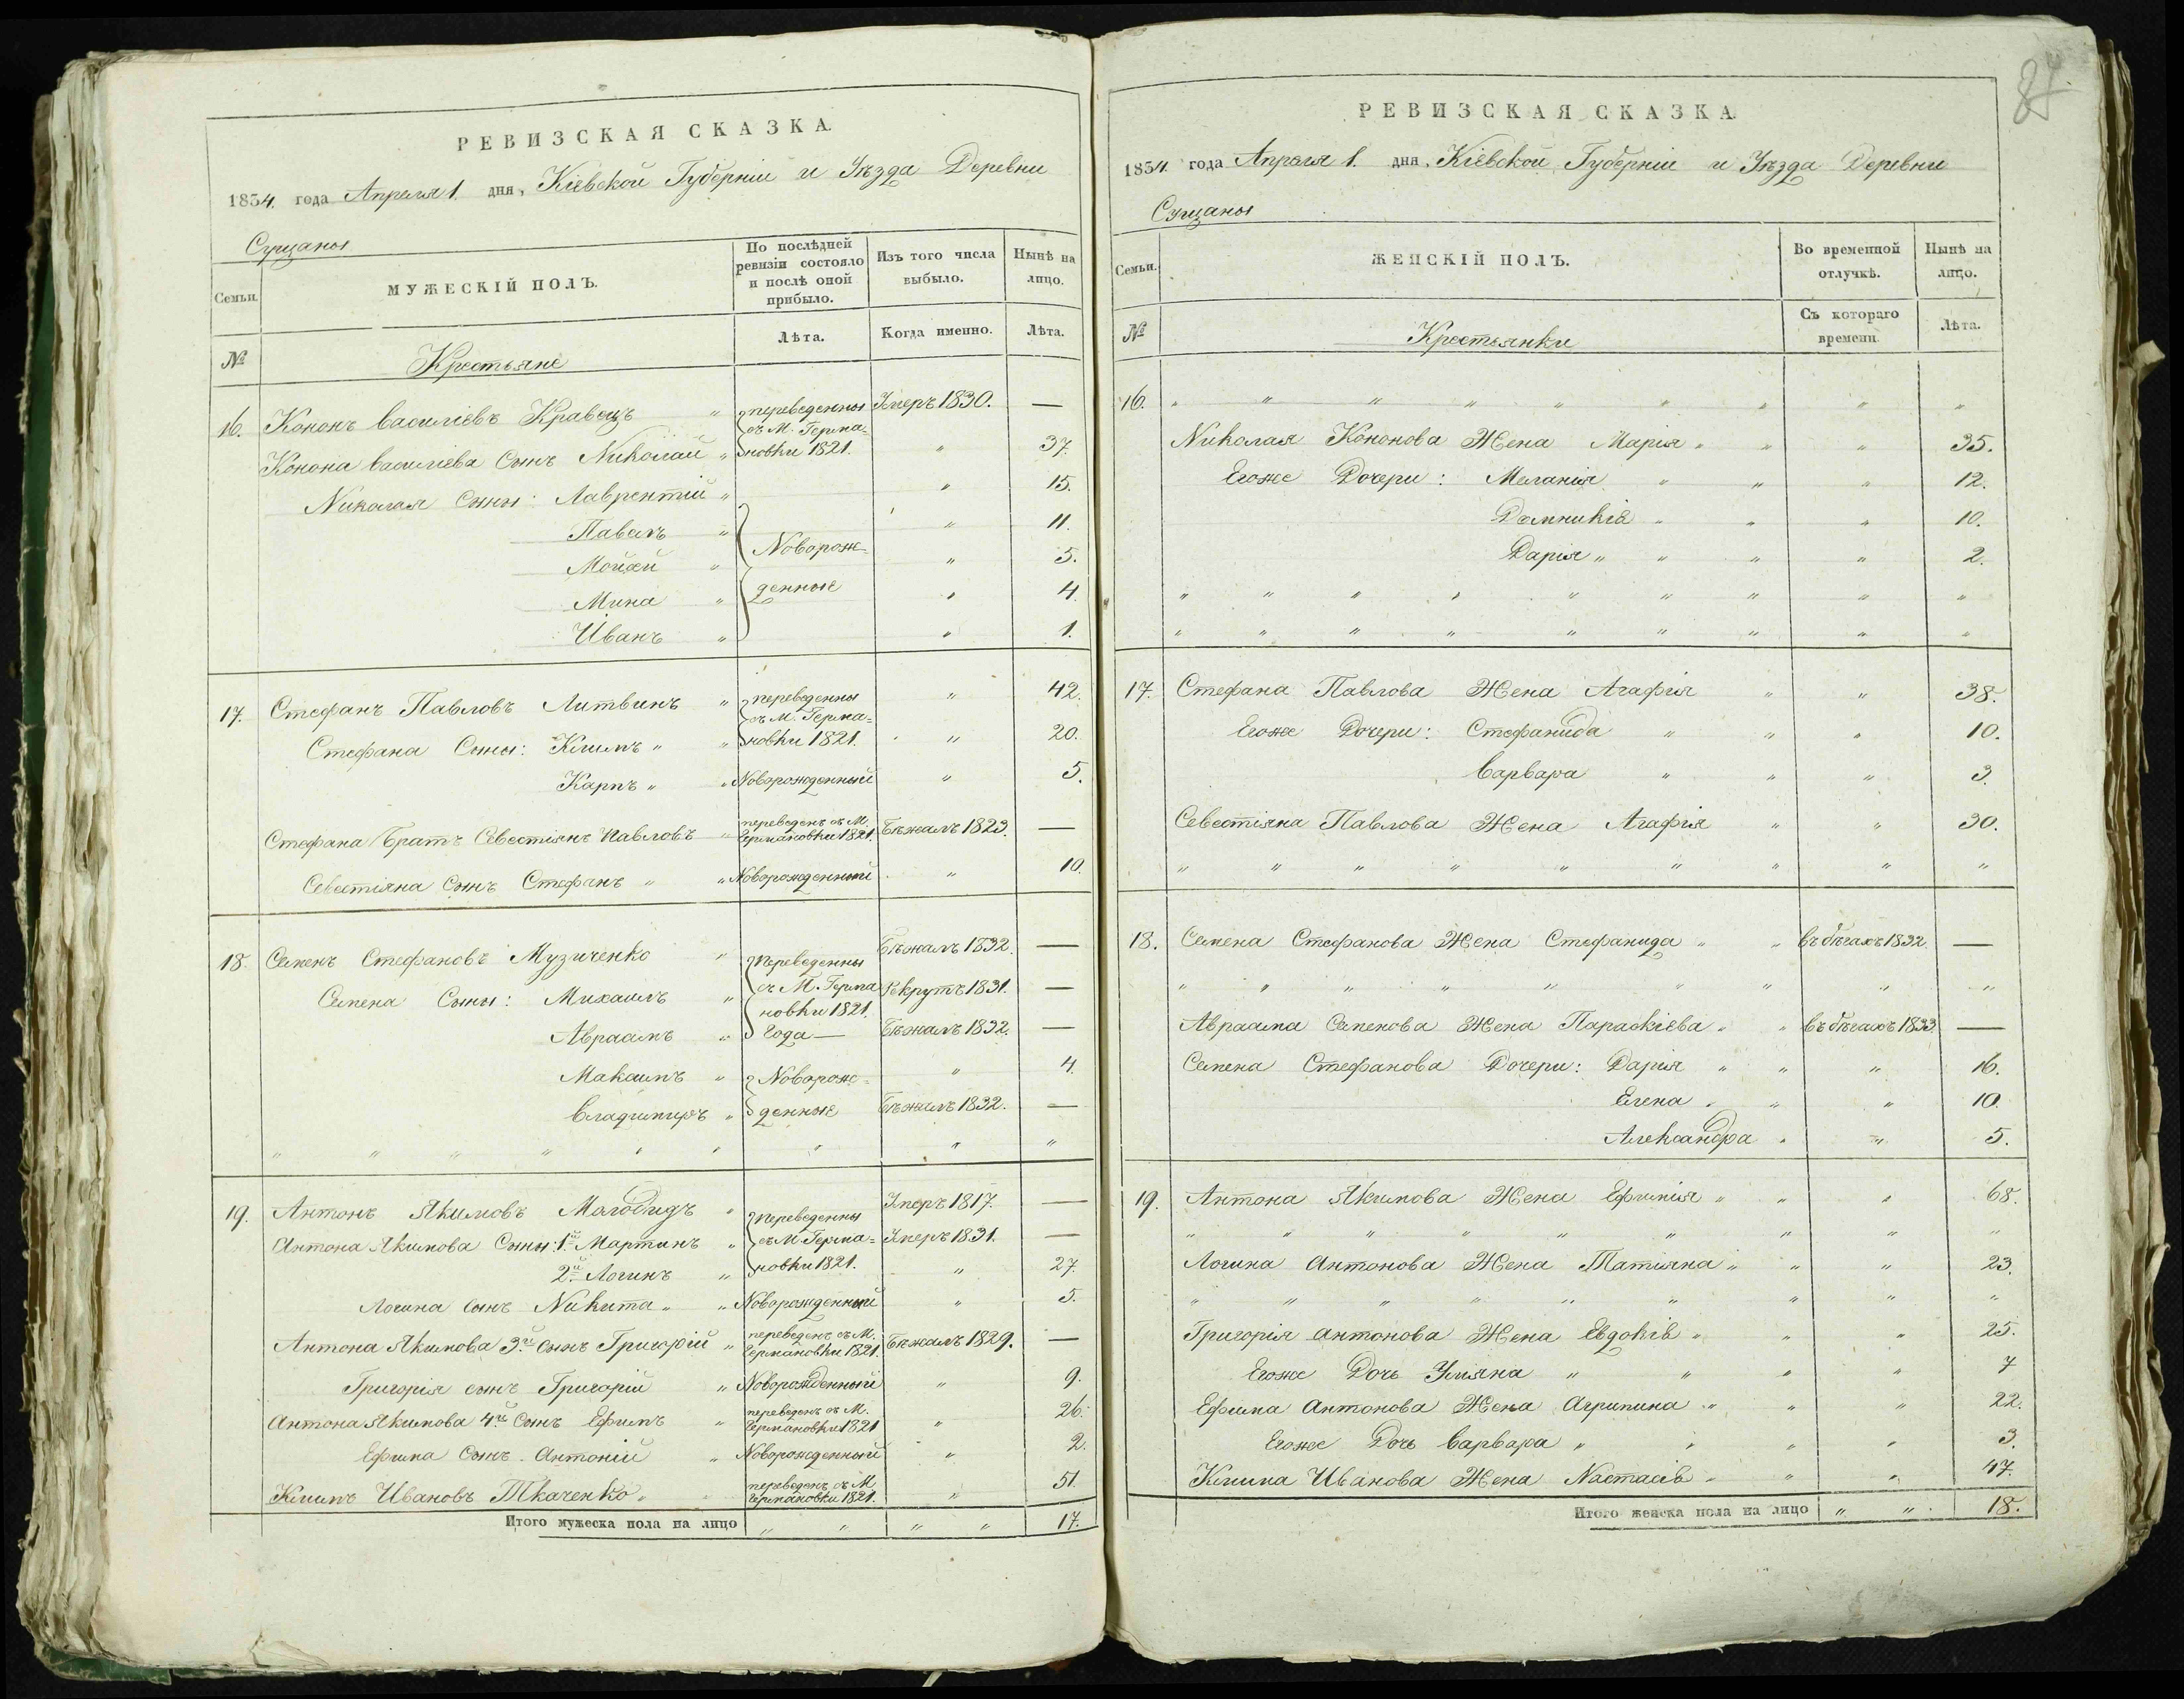 РЕВИЗСКАЯ СКАЗКА.
1834. года Апреля 1. дня, Кіевской Губерніи и Уѣзда Деревни
Сущаны
Семьи. МУЖЕСКІЙ ПОЛЪ. По послѣдней ревизіи состояло и послѣ оной прибыло. Изъ того числа выбыло. Нынѣ на лицо.
№ Крестьяне Лѣта. Когда именно. Лѣта.
16. Кононъ Василіевъ Кравецъ " переведенны Умеръ 1830. —
съ М. Герма=
Конона Василіева Сынъ Николай " новки 1821. " 37.
Николая Сыны: Лаврентій " " 15.
Павелъ " " 11.
Новорож=
Мойсей " " 5.
денные
Мина " " 4.
Иванъ " " 1.
17. Стефанъ Павловъ Литвинъ " переведенны " 42.
съ М. Герма=
Стефана Сыны: Климъ " " новки 1821. " 20.
Карпъ " " Новорожденный " 5.
Стефана Братъ Севестіянъ Павловъ " переведенъ съ М. Германовки 1821. Бѣжалъ 1823. —
Севестіяна Сынъ Стефанъ " " Новорожденный " 10.
18. Семенъ Стефановъ Музиченко " переведенны Бѣжалъ 1832. —
Семена Сыны: Михаилъ " съ М. Герма Рекрутъ 1831. —
новки 1821.
Авраамъ " года — Бѣжалъ 1832. —
Максимъ " Новорож= " 4.
Владимиръ " денные Бѣжалъ 1832. —
" " " " " " " " "
19. Антонъ Якимовъ Молодидъ " переведенны Умеръ 1817. —
Антона Якимова Сыны: 1й Мартинъ " съ М. Герма= Умеръ 1831. —
2й Логинъ " новки 1821. " 27.
Логина сынъ Никита " " Новорожденный " 5.
Антона Якимова 3й сынъ Григорій " переведенъ съ М. Германовки 1821. Бѣжалъ 1829. —
Григорія сынъ Григорій " Новорожденный " 9.
Антона Якимова 4й Сынъ Ефимъ " переведенъ съ М. Германовки 1821 " 26.
Ефима Сынъ Антоній " Новорожденный " 2.
Климъ Ивановъ Ткаченко " " переведенъ съ М. Германовки 1821. " 51.
Итого мужеска пола на лицо " " " " 17.
РЕВИЗСКАЯ СКАЗКА.
1834. года Апреля 1. дня, Кіевской Губерніи и Уѣзда Деревни
Сущаны
Семьи. ЖЕНСКІЙ ПОЛЪ. Во временной отлучкѣ. Нынѣ на лицо.
№ Крестьянки Съ котораго времени. Лѣта.
16. " " " " " " " " "
Николая Кононова Жена Марія " " " 35.
Егоже Дочери: Меланія " " " 12.
Домникія " " " 10.
Дарія " " " " 2.
" " " " " " " " "
" " " " " " " " "
17. Стефана Павлова Жена Агафія " " 38.
Егоже Дочери: Стефанида " " " 10.
Варвара " " " 3.
Севестіяна Павлова Жена Агафія " " 30.
" " " " " " " " "
18. Семена Стефанова Жена Стефанида " " въ бѣгахъ 1832. —
" " " " " " " " "
Авраама Семенова Жена Параскіева " " въ бѣгахъ 1833. —
Семена Стефанова Дочери: Дарія " " " 16.
Елена " " " 10.
Александра " " 5.
19. Антона Якимова Жена Ефимія " " " 68.
" " " " " " " " "
Логина Антонова Жена Татіяна " " " 23.
" " " " " " " " "
Григорія Антонова Жена Евдокія " " " 25.
Егоже Дочь Уліяна " " " " 7
Ефима Антонова Жена Агрипина " " " 22.
Егоже Дочь Варвара " " " " 3.
Клима Иванова Жена Настасія " " " 47.
Итого женска пола на лицо " " 18.